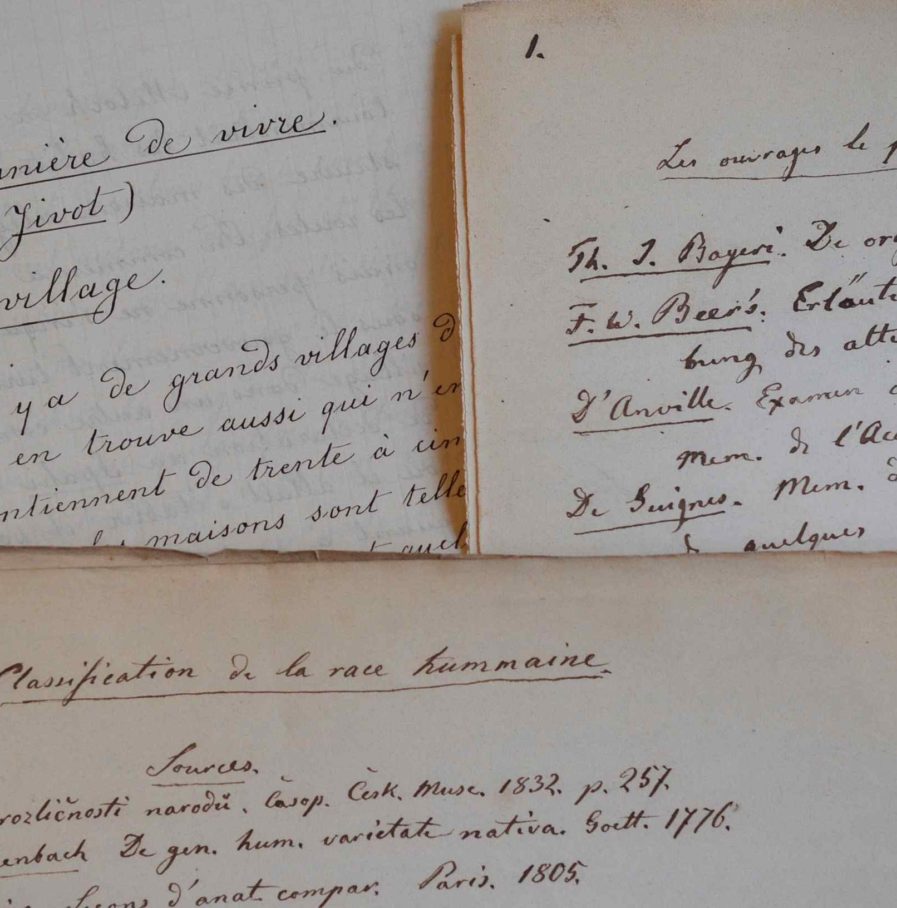 nière de vivre.
Jivot)
village.
y a de grands villages d
en trouve aussi qui n'en
ntiennent de trente à cin
maisons sont telle
quel
1.
Les ouvrages le p
Th. J. Bayeri. De ori
F. W. Beer's. Erläute
bung des alte
D'Anville. Examen
mem. de l'Ac
De Guignes. Mem. d
de quelques
Classification de la race hummaine.
Sources.
rozličnosti narodů. Časop. Česk. Muse. 1832. p. 257.
enbach De gen. hum. varietate nativa. Goett. 1776.
Leçons d'anat. compar. Paris. 1805.